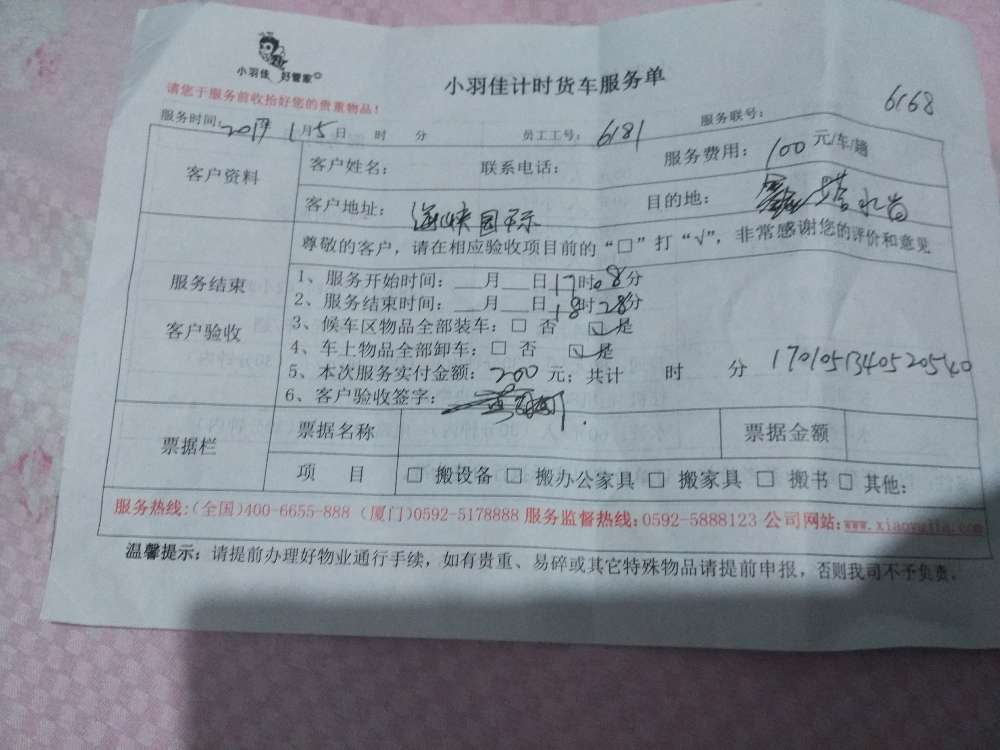 小羽佳 好管家
小羽佳计时货车服务单
请您于服务前收拾好您的贵重物品!
服务联号: 6168
服务时间: 2017年 1月5日 时 分 员工工号: 6181
客户资料 客户姓名: 联系电话: 服务费用: 100元/车/趟
客户地址: 海峡国际 目的地:
尊敬的客户,请在相应验收项目前的“□”打“√”,非常感谢您的评价和意见
服务结束
客户验收
1、服务开始时间: 月 日17时08分
2、服务结束时间: 月 日18时28分
3、候车区物品全部装车: □ 否 ☑ 是
4、车上物品全部卸车: □ 否 ☑ 是
5、本次服务实付金额: 200 元; 共计 时 分 17010513405205540
6、客户验收签字:
票据栏 票据名称 票据金额
项 目 □ 搬设备 □ 搬办公家具 □ 搬家具 □ 搬书 □ 其他:
服务热线:(全国)400-6655-888 (厦门)0592-5178888 服务监督热线:0592-5888123 公司网站:www.xiaoyujia.com
温馨提示: 请提前办理好物业通行手续,如有贵重、易碎或其它特殊物品请提前申报,否则我司不予负责.